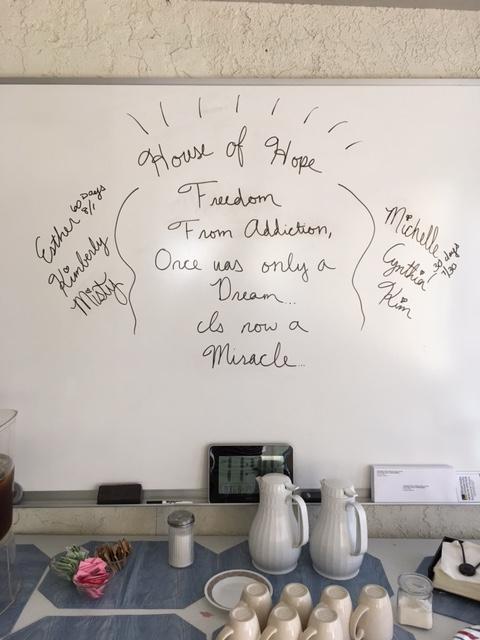 House of Hope
Freedom
From Addiction,
Once was only a
Dream...
Is now a
Miracle...
Esther 60 Days
8/1
Kimberly
Misty
Michelle
Cynthia 30 days
7/30
Kim